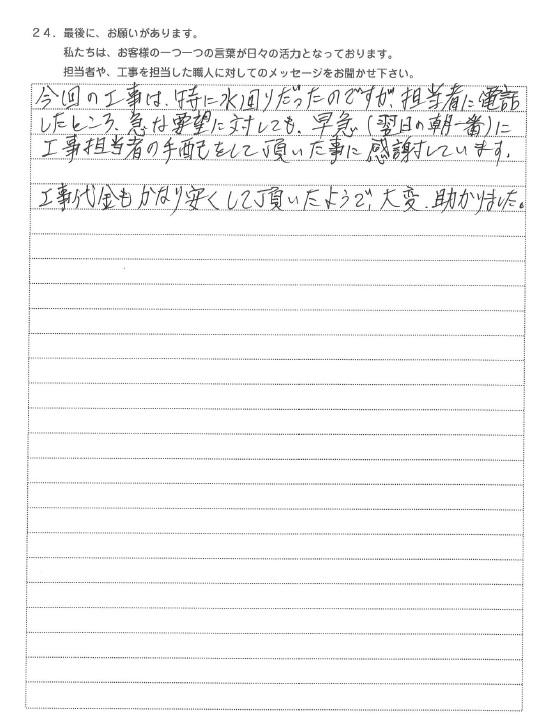 24．最後に、お願いがあります。
私たちは、お客様の一つ一つの言葉が日々の活力となっております。
担当者や、工事を担当した職人に対してのメッセージをお聞かせ下さい。
今回の工事は、特に水回りだったのですが、担当者に電話
したところ、急な要望に対しても、早急(翌日の朝一番)に
工事担当者の手配をして頂いた事に感謝しています。
工事代金もかなり安くして頂いたようで、大変、助かりました。